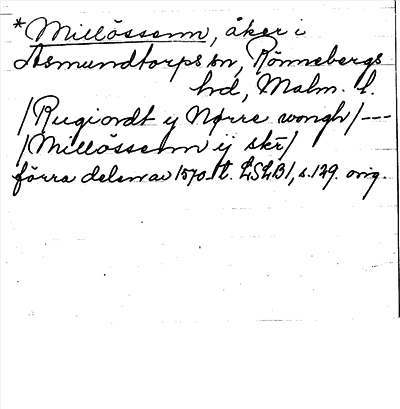 * Millössenn, åker i
Asmundtorps sn, Rönnebergs
hd, Malm. l.
/Rugiordt y Nørre wongh/---
/Millössenn ij skr/
förra delen av 1570-t. LSLB1, s. 129. orig.